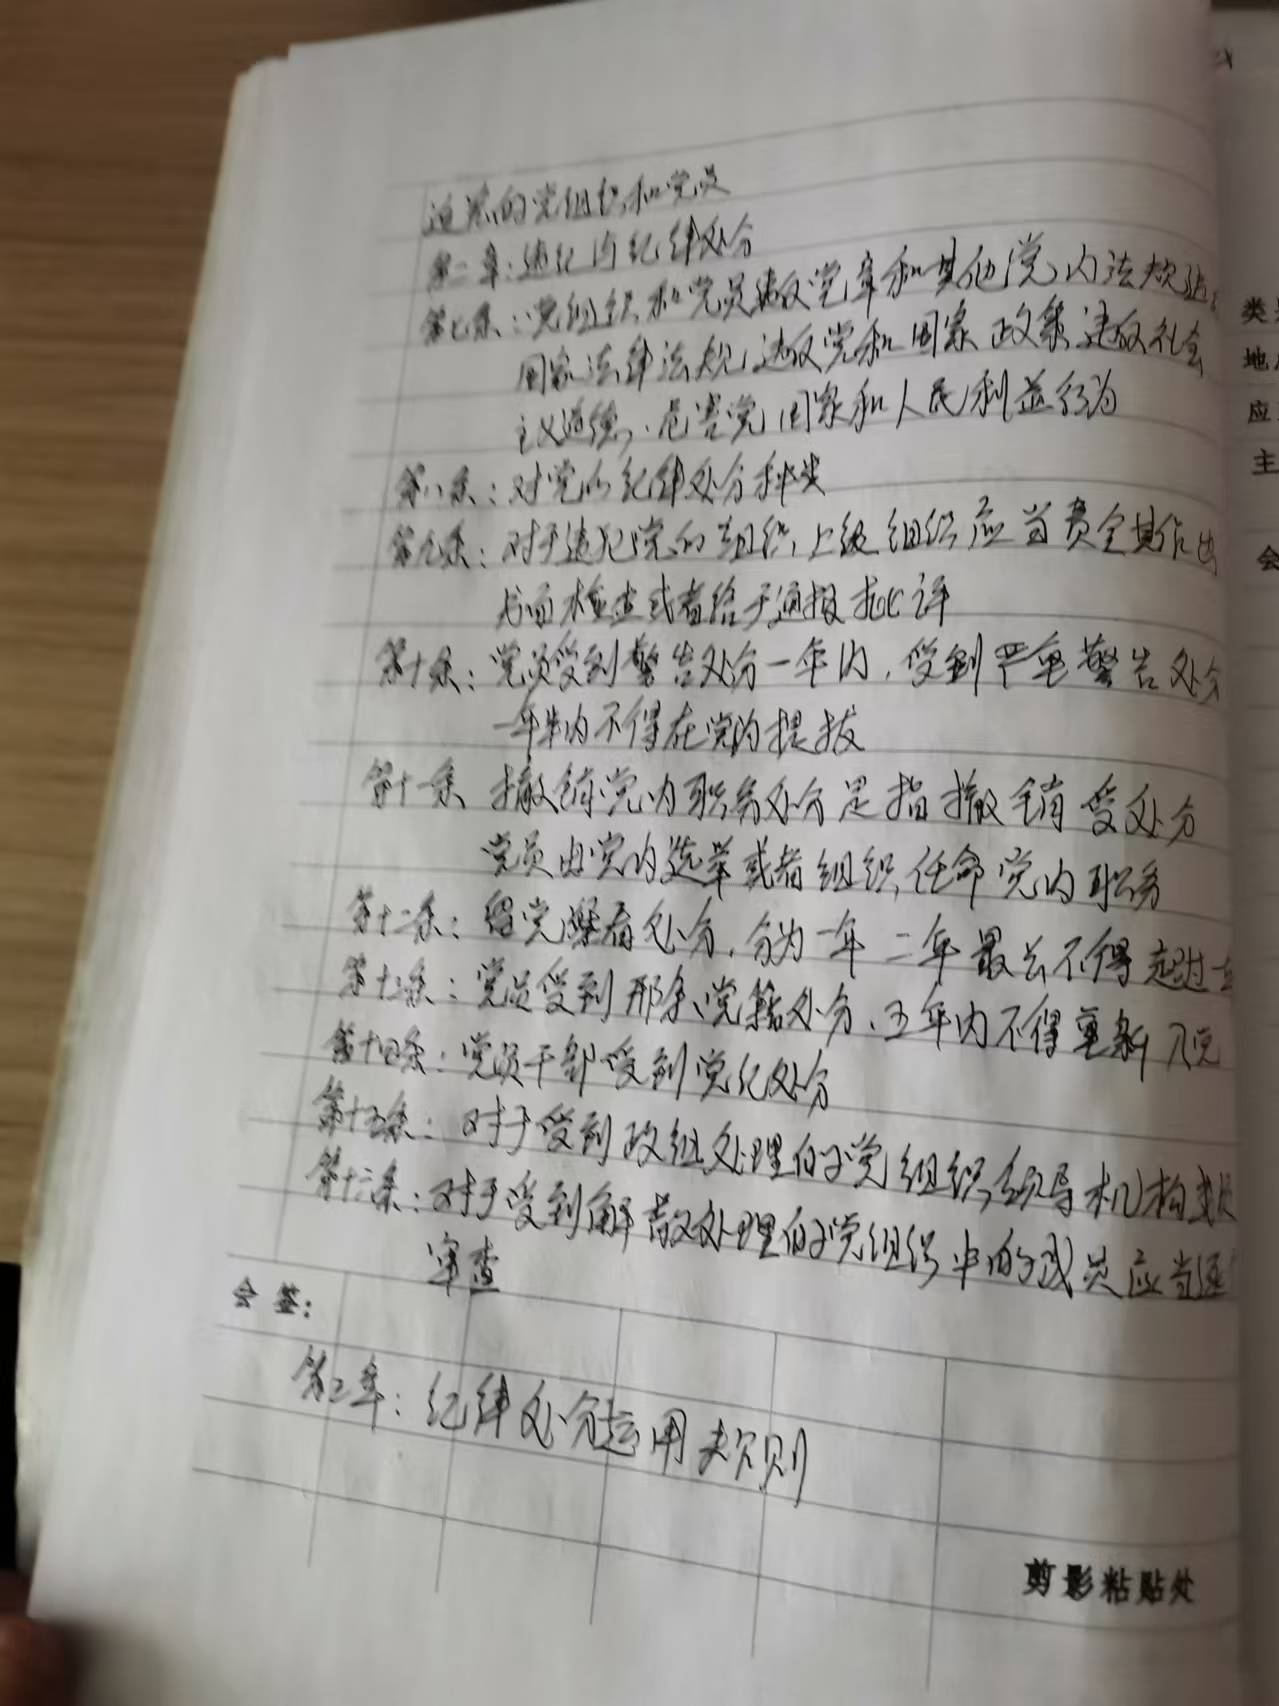 追究的党组织和党员
第二章:违纪与纪律处分
第七条:党组织和党员违反党章和其他党内法规违
国家法律法规,违反党和国家政策违反社会
主义道德,危害党国家和人民利益行为
第八条:对党的纪律处分种类
第九条:对于违犯党的组织,上级组织应当责令其作出
书面检查或者给予通报批评
第十条:党员受到警告处分一年内,受到严重警告处分
一年半内不得在党内提拔
第十一条 撤销党内职务处分是指撤销受处分
党员由党内选举或者组织任命党内职务
第十二条:留党察看处分,分为一年二年最长不得超过
第十三条:党员受到开除党籍处分、五年内不得重新入党
第十四条:党员干部受到党纪处分
第十五条:对于受到改组处理的党组织领导机构
第十六条:对于受到解散处理的党组织中的成员应当逐
审查
会签:
第三章:纪律处分运用规则
剪影粘贴处
类
地
应
主
会